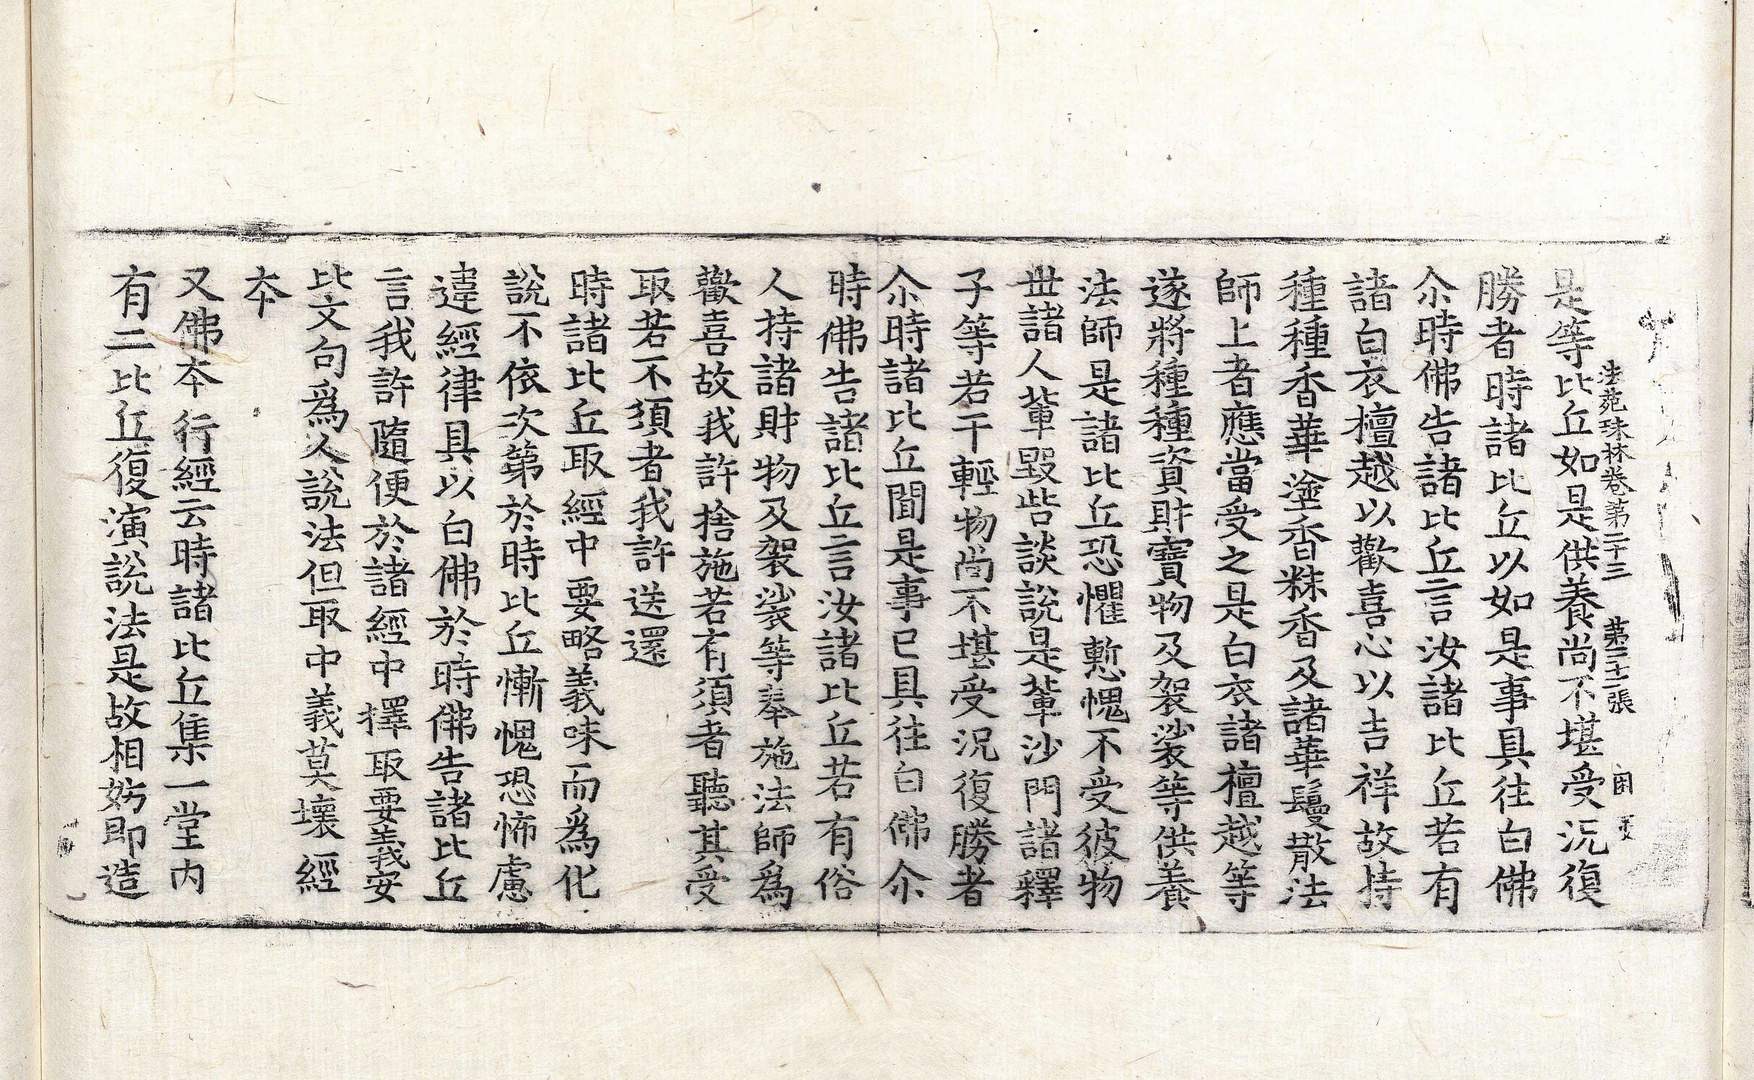 法苑珠林卷第二十三 第三十二張 困
是等比丘如是供養尚不堪受況復
勝者時諸比丘以如是事具往白佛
尒時佛告諸比丘言汝諸比丘若有
諸白衣檀越以歡喜心以吉祥故持
種種香華塗香粖香及諸華鬘散法
師上者應當受之是白衣諸檀越等
遂將種種資財寶物及袈裟等供養
法師是諸比丘恐懼慙愧不受彼物
世諸人輩毀呰談說是輩沙門諸釋
子等若干輕物尚不堪受況復勝者
尒時諸比丘聞是事已具往白佛尒
時佛告諸比丘言汝諸比丘若有俗
人持諸財物及袈裟等奉施法師爲
歡喜故我許捨施若有須者聽其受
取若不須者我許送還
時諸比丘取經中要略義味而爲化
說不依次第於時比丘慚愧恐怖慮
違經律具以白佛於時佛告諸比丘
言我許隨便於諸經中擇取要義安
比文句爲人說法但取中義莫壞經
本
又佛本行經云時諸比丘集一堂內
有二比丘復演說法是故相妨即造